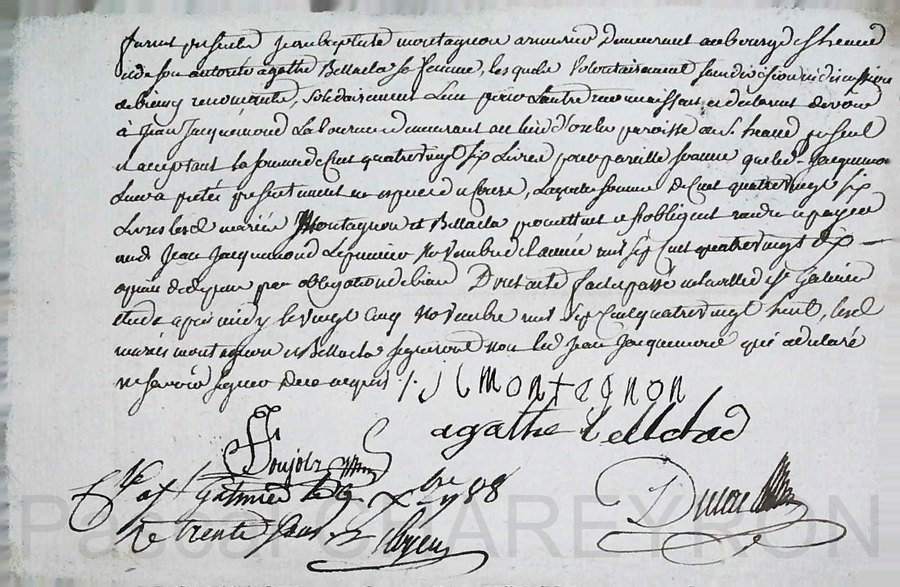 furent presents Jean baptiste montagnon armurier Demeurant au bourg st heand
et de son autorité agathe Bellacla sa femme, lesquels Volontairement sans division ni discussion
de biens y renonceants, solidairement L'un pour L'autre reconnaissent et déclarent devoir
à Jean Jacquemond Laboureur demeurant au lieu d' paroisse de St. heand present
et acceptant la somme de Cent quatre vingt six Livres pour pareille somme que led. Jacquemond
Leur a pretés presentement en especes de cours, Laquelle somme de Cent quatre vingt six
Livres lesd. mariés Montagnon et Bellacla promettent et s'obligent rendre et payer
aud. Jean Jacquemond Le premier Novembre de L'année mil sept Cent quatre vingt dix
a peine de depens par obligation de biens Dont acte fait et passé en la ville de st. Galmier
Etude apres midy le vingt cinq Novembre mil sept Cent quatre vingt huit, lesd.
mariés montagnon et Bellacla signeront non led. Jean Jacquemond qui a déclaré
ne savoir signer De ce requis /. J B montagnon
agathe bellclad
Cllé a st Galmier le 9 Xbre 1788
Rt trente sous
Pascal CHAREYRON